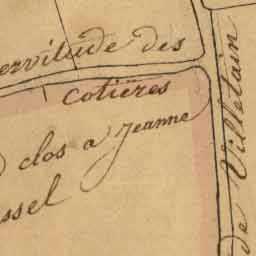 ervitude des
cotières
clos a Jeanne
ssel
de Villetain